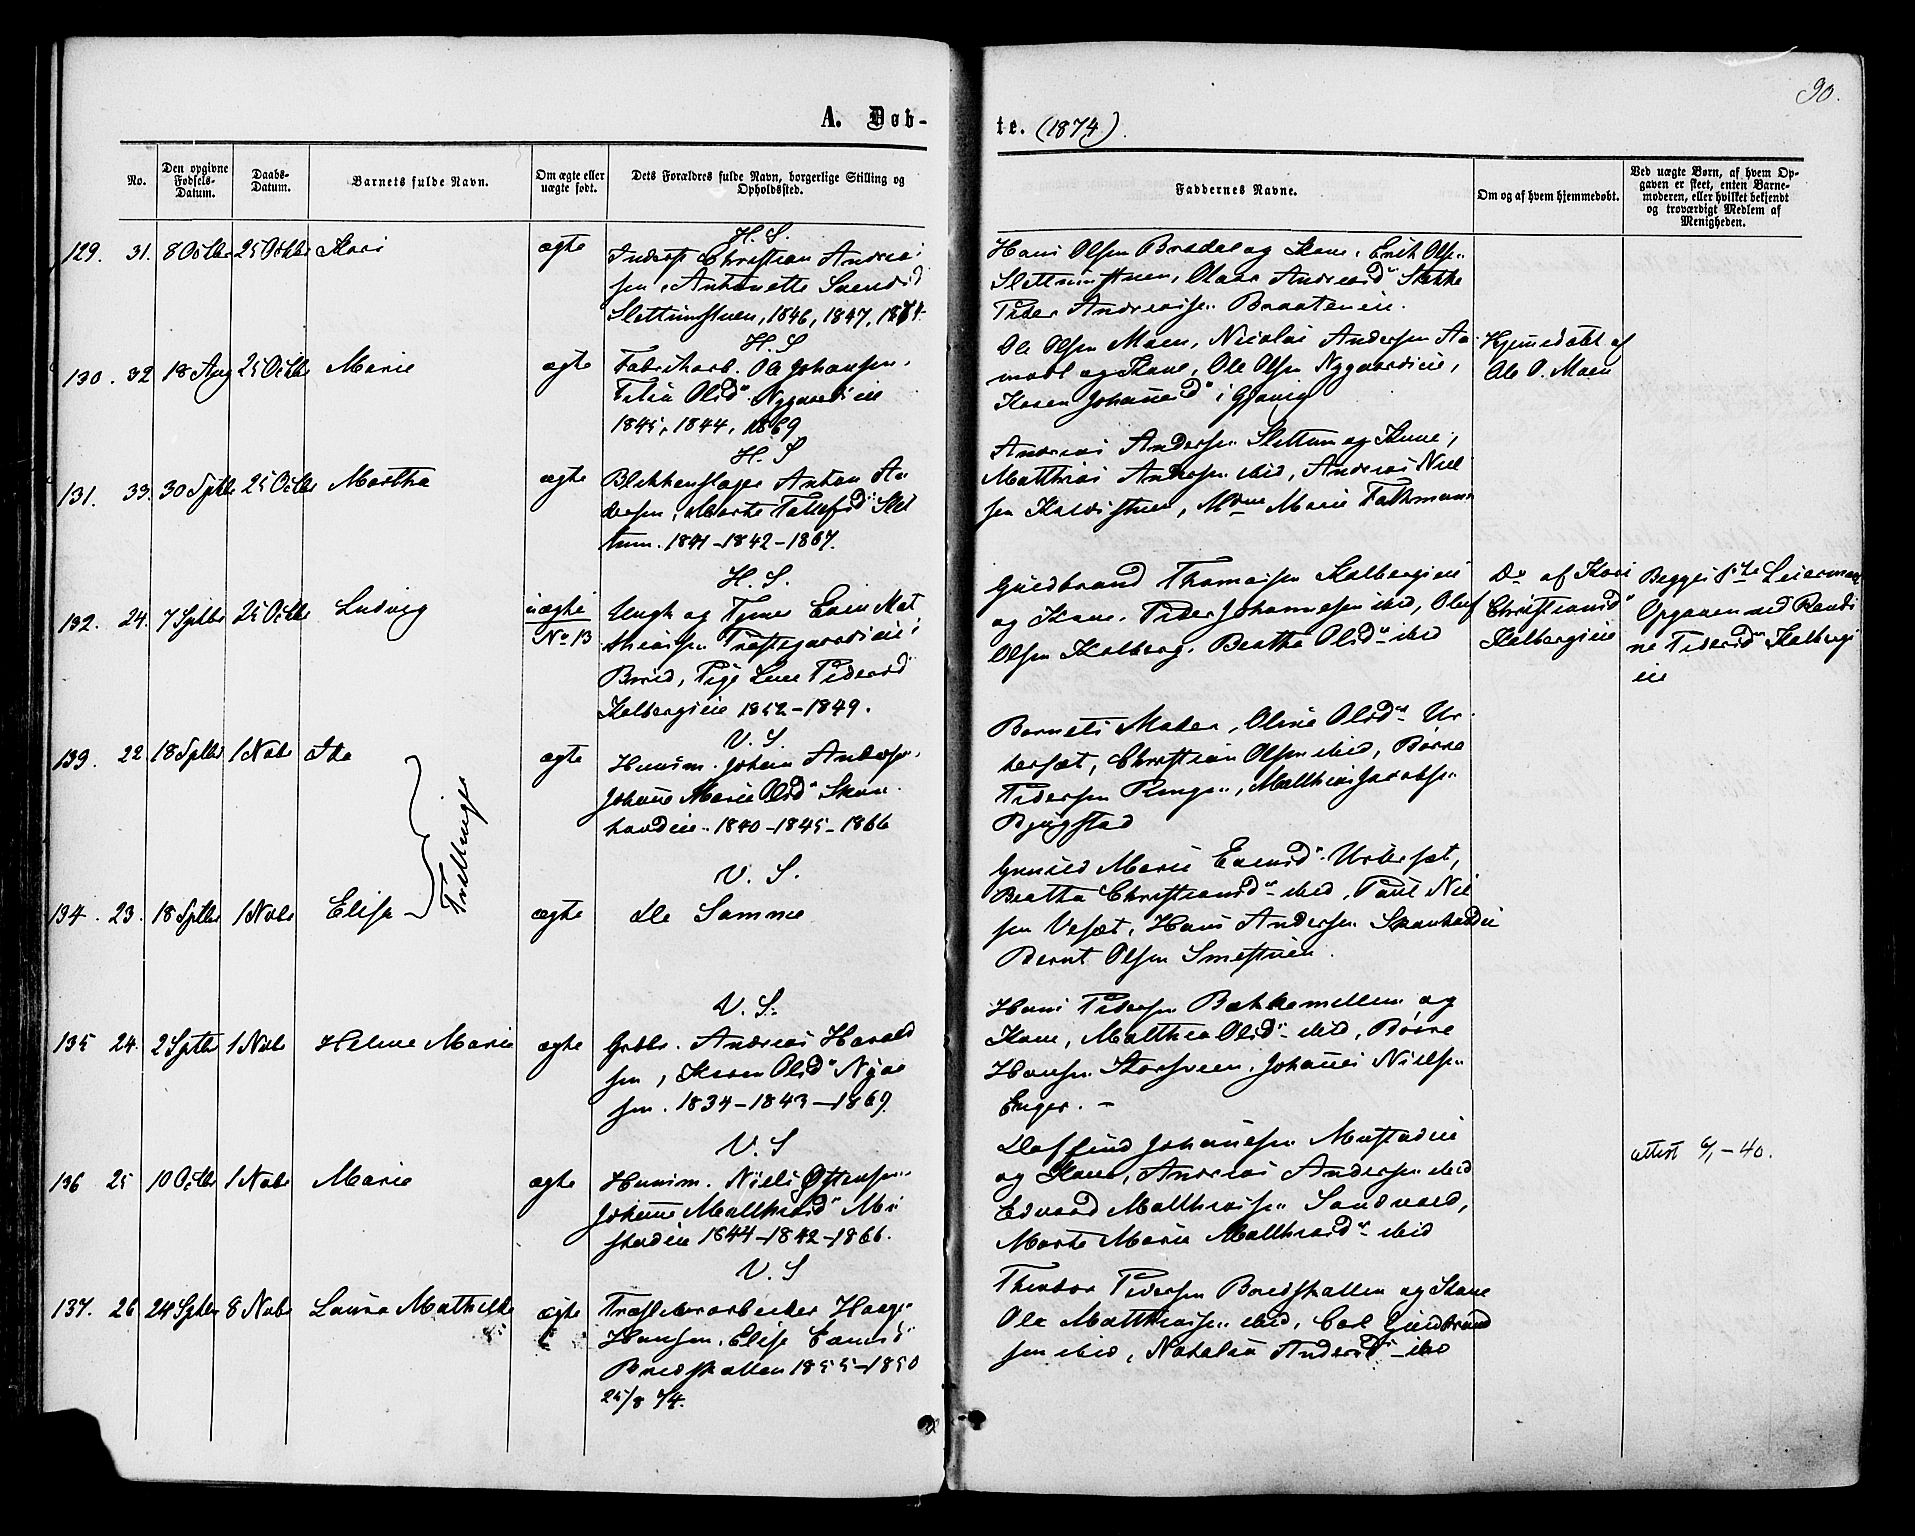 90.
A. Døb-
te. (1874).
No.
Den opgivne Fødsels-Datum.
Daabs-Datum.
Barnets fulde Navn.
Om ægte eller uægte født.
Dets Forældres fulde Navn, borgerlige Stilling og Opholdssted.
Faddernes Navne.
Om og af hvem hjemmedøbt.
Ved uægte Børn, af hvem Op-
gaven er skeet, enten Barne-
moderen, eller hvilket bekjendt
og troværdigt Medlem af
Menigheden.
129. 31. 8 Octbr 25 Octbr Kari ægte
H. S.
Inderst Christian Andrea-
sen, Antonette Svensd
Slettumstuen, 1846, 1847, 1874
Hans Olsen Bradal og Kone, Erik Olsen
Slettumstuen, Olava Andreasd Stokke
Peder Andreassen Braateneie.
130. 32 18 Aug 25 Octbr Marie ægte
H. S
Fabrikarb. Ole Johansen,
Olsd Nygaardseie
1845, 1844, 1869
Ole Olsen Moen, Nicolai Andersen Aa-
modt og Kone, Ole Olsen Nygaardseie,
Karen Johannesd i Gjøvig
Hjemmedøbt af
Ole O. Moen
131. 33. 30 Sptbr 25 Octbr Martha ægte
H. S
Blikkenslager Anton An-
dersen, Marte Tollefsd Slet-
tum. 1841-1842-1867.
Andreas Andersen Slettum og Kone,
Matthias Andersen ibid, Andreas Niel-
sen Kaldistuen, Mdme Marie Falkmann
132. 24. 7 Sptbr 25 Octbr Ludvig uægte
No 13
H. S.
Ungk og Tjener Even Mat-
thiassen Præstegaardseie i
Birid, Pige Lene Pedersd
Kalbergeie 1852-1849.
Gudbrand Thomassen Kalbergeie
og Kone, Peder Johannesen ibid, Oluf
Olsen Kalberg, Beatha Olsd ibid
Do af Kari
Christiansd
Kalbergeie
Begges 1ste Leiermaal
Opgaven ved Randi-
ne Pedersd Kalberg-
eie
133. 22 18 Sptbr 1 Nvbr Ida ægte
Tvillinger
V. S.
Huusm. Johan Andersen,
Johanne Marie Olsd Skon-
hovdeie 1840-1845-1866
Barnets Moder, Oline Olsd Ur-
bersæt, Christian Olsen ibid, Børre
Pedersen Ringen, Matthias Jacobsen
Bjugstad
134. 23. 18 Sptbr 1 Nvbr Elise ægte
V. S.
de Samme
Gunild Marie Evensd Urbersæt,
Beatha Christiansd ibid, Paul Niel-
sen Vesæt, Hans Andersen Skonhovdeie
Bernt Olsen Smestuen.
135 24. 2 Sptbr 1 Nvbr Helene Marie ægte
V. S.
Grdbr. Andreas Harald-
sen, Karen Olsd Nøss-
sen. 1834-1843-1869.
Hans Pedersen Bækkemellem og
Kone, Matthea Olsd ibid, Børre
Hansen Korsveen, Johannes Nielsen
Enger. -
136 25 10 Octbr 1 Nvbr Marie ægte
V. S
Huusm. Niels Østensen
Johanne Matthiasd Mu-
stadeie 1844-1842-1866.
Daffind Johannesen Mustadeie
og Kone, Andreas Andersen ibid
Edvard Matthiassen Sandvold,
Marte Marie Matthiasd ibid
attest 6/1-40.
137. 26 24 Sptbr 8 Nvbr Laura Mathilde ægte
V. S
Træsliverarbeider Haage
Hansen, Elise Evensd
Bredskallen 1855-1850
25/8 74.
Theodor Pedersen Bredskallen og Kone
Ole Matthiassen ibid, Carl Gudbrand-
sen ibid, Nathalie Andersd ibid